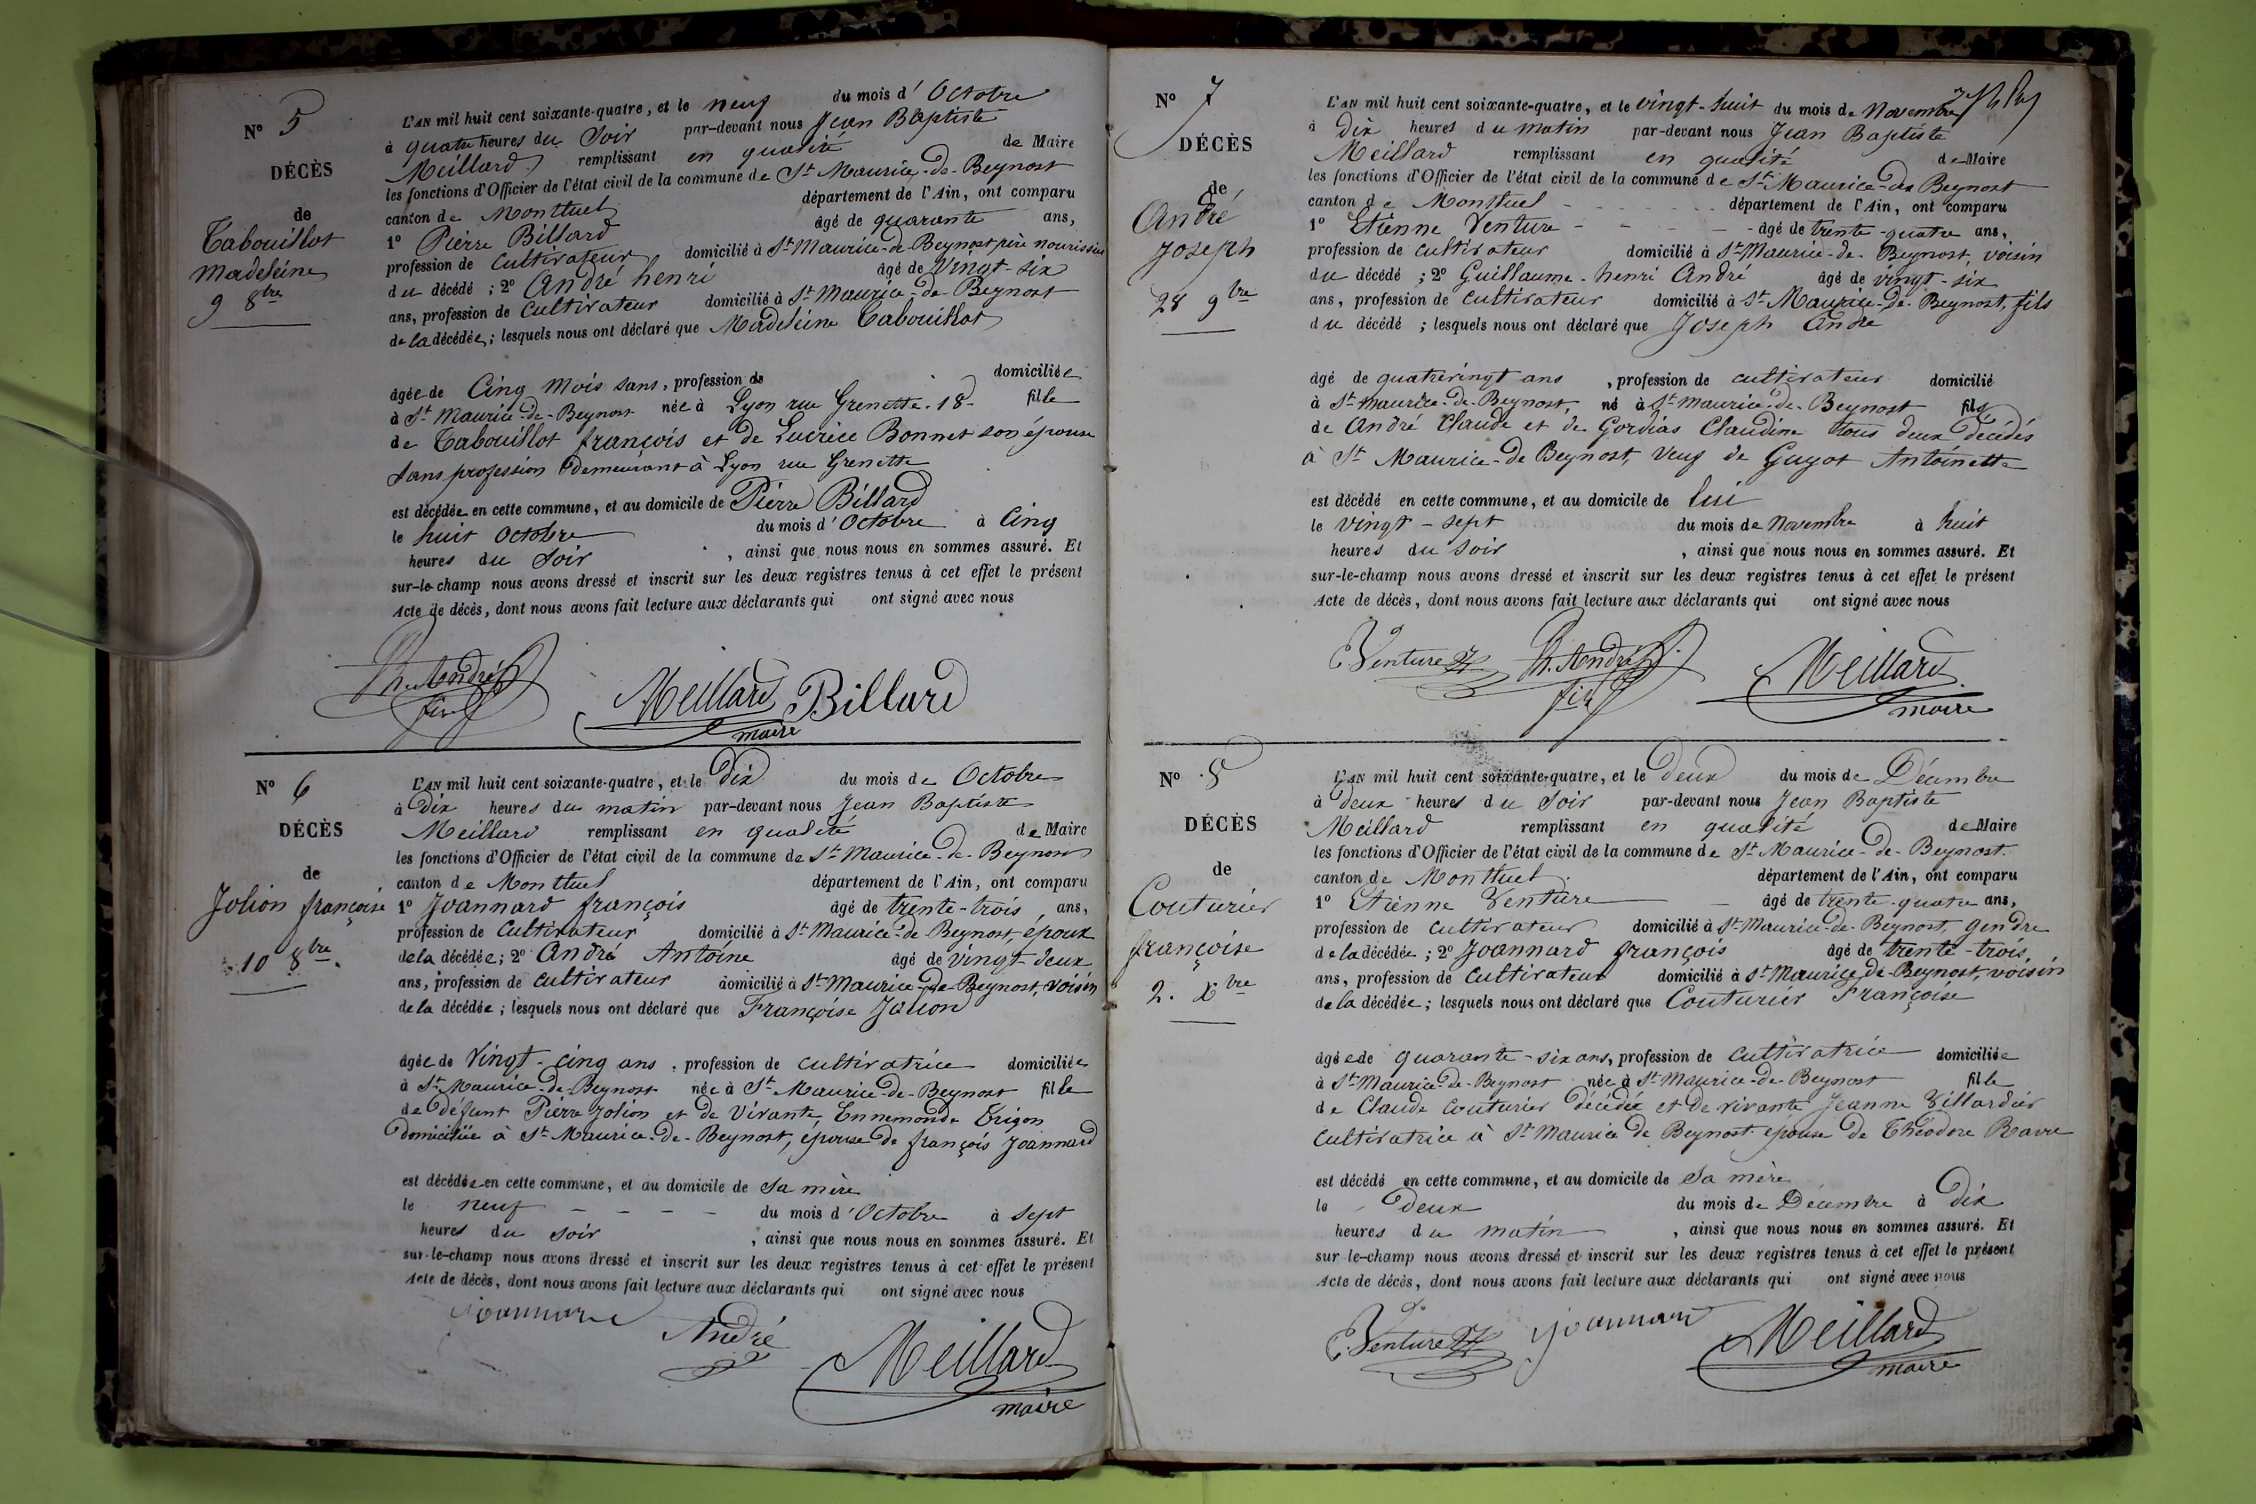 N° 5
DÉCÈS
de
Tabouillot
Madeleine
9 8bre
L'AN mil huit cent soixante-quatre, et le neuf du mois d'Octobre
à quatre heures du Soir par-devant nous Jean Baptiste
Meillard remplissant en qualité de Maire
les fonctions d'Officier de l'état civil de la commune de St Maurice-de-Beynost
canton de Montluel département de l'Ain, ont comparu
1° Pierre Billard âgé de quarante ans,
profession de cultivateur domicilié à St Maurice-de-Beynost père nourissier
du décédé ; 2° André henri âgé de vingt-six
ans, profession de cultivateur domicilié à St Maurice-de-Beynost
de la décédée ; lesquels nous ont déclaré que Madeleine Tabouillot
âgée de Cinq Mois sans, profession de domiciliée
à St Maurice-de-Beynost née à Lyon rue Grenette. 18- fille
de Tabouillot françois et de Lucrèce Bonnet son épouse
Sans profession demeurant à Lyon rue Grenette
est décédée en cette commune, et au domicile de Pierre Billard
le huit Octobre du mois d'Octobre à Cinq
heures du Soir , ainsi que nous nous en sommes assuré. Et
sur-le-champ nous avons dressé et inscrit sur les deux registres tenus à cet effet le présent
Acte de décès, dont nous avons fait lecture aux déclarants qui ont signé avec nous
h. André
fils
Meillard Billard
maire
N° 6
DÉCÈS
de
Jolion françoise
10 8bre
L'AN mil huit cent soixante-quatre, et le Dix du mois de Octobre
à Dix heures du matin par-devant nous Jean Baptiste
Meillard remplissant en qualité de Maire
les fonctions d'Officier de l'état civil de la commune de St Maurice-de-Beynost
canton de Montluel département de l'Ain, ont comparu
1° Joannard françois âgé de trente-trois ans,
profession de cultivateur domicilié à St Maurice-de-Beynost, époux
de la décédée ; 2° André Antoine âgé de vingt-deux
ans, profession de cultivateur domicilié à St Maurice-de-Beynost, voisin
de la décédée ; lesquels nous ont déclaré que Françoise Jolion
âgée de vingt-cinq ans, profession de cultivatrice domiciliée
à St Maurice-de-Beynost née à St Maurice-de-Beynost fille
de défunt Pierre Jolion et de vivante, Ennemonde Trigon
domiciliée à St Maurice-de-Beynost, épouse de françois Joannard
est décédée en cette commune, et au domicile de sa mère
le neuf - - - - du mois d'Octobre à sept
heures du soir , ainsi que nous nous en sommes assuré. Et
sur-le-champ nous avons dressé et inscrit sur les deux registres tenus à cet effet le présent
Acte de décès, dont nous avons fait lecture aux déclarants qui ont signé avec nous
Joannard
André
Meillard
maire
N° 7
DÉCÈS
de
André
Joseph
28 9bre
L'AN mil huit cent soixante-quatre, et le vingt-huit du mois de Novembre
à dix heures du matin par-devant nous Jean Baptiste
Meillard remplissant en qualité de Maire
les fonctions d'Officier de l'état civil de la commune de St Maurice-de Beynost
canton de Montluel - - - - département de l'Ain, ont comparu
1° Etienne Venture - - - - âgé de trente-quatre ans,
profession de cultivateur domicilié à St Maurice-de-Beynost, voisin
du décédé ; 2° Guillaume-henri André âgé de vingt-six
ans, profession de cultivateur domicilié à St Maurice-de-Beynost, fils
du décédé ; lesquels nous ont déclaré que Joseph André
âgé de quatrevingt ans , profession de cultivateur domicilié
à St Maurice-de-Beynost, né à St Maurice-de-Beynost fils
de André Claude et de Gordias Claudine tous deux décédés
à St Maurice-de Beynost, veuf de Guyot Antoinette
est décédé en cette commune, et au domicile de lui
le vingt-sept du mois de Novembre à huit
heures du soir , ainsi que nous nous en sommes assuré. Et
sur-le-champ nous avons dressé et inscrit sur les deux registres tenus à cet effet le présent
Acte de décès, dont nous avons fait lecture aux déclarants qui ont signé avec nous
E. Venture h. André
fils
Meillard
maire
N° 8
DÉCÈS
de
Couturier
françoise
2. Xbre
L'AN mil huit cent soixante-quatre, et le deux du mois de Décembre
à deux heures du Soir par-devant nous Jean Baptiste
Meillard remplissant en qualité de Maire
les fonctions d'Officier de l'état civil de la commune de St Maurice-de-Beynost.
canton de Montluel département de l'Ain, ont comparu
1° Etienne Venture âgé de trente-quatre ans,
profession de cultivateur domicilié à St Maurice-de-Beynost, gendre
de la décédée ; 2° Joannard françois âgé de trente-trois
ans, profession de cultivateur domicilié à St Maurice-de-Beynost, voisin
de la décédée ; lesquels nous ont déclaré que Couturier Françoise
âgée de quarante-six ans, profession de cultivatrice domiciliée
à St Maurice-de-Beynost née à St Maurice-de-Beynost fille
de Claude Couturier décédé et de vivante Jeanne Villardier
Cultivatrice à St Maurice de Beynost épouse de Théodore Ravu
est décédé en cette commune, et au domicile de Sa mère
le deux du mois de Décembre à Dix
heures du matin , ainsi que nous nous en sommes assuré. Et
sur le-champ nous avons dressé et inscrit sur les deux registres tenus à cet effet le présent
Acte de décès, dont nous avons fait lecture aux déclarants qui ont signé avec nous
E. Venture Joannard Meillard
maire